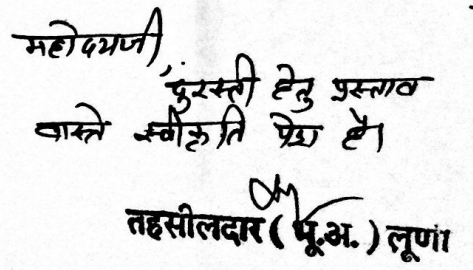 महोदयजी,
दुरस्ती हेतु प्रस्ताव
वास्ते स्वीकृति पेश है।
तहसीलदार (भू.अ.) लूणी